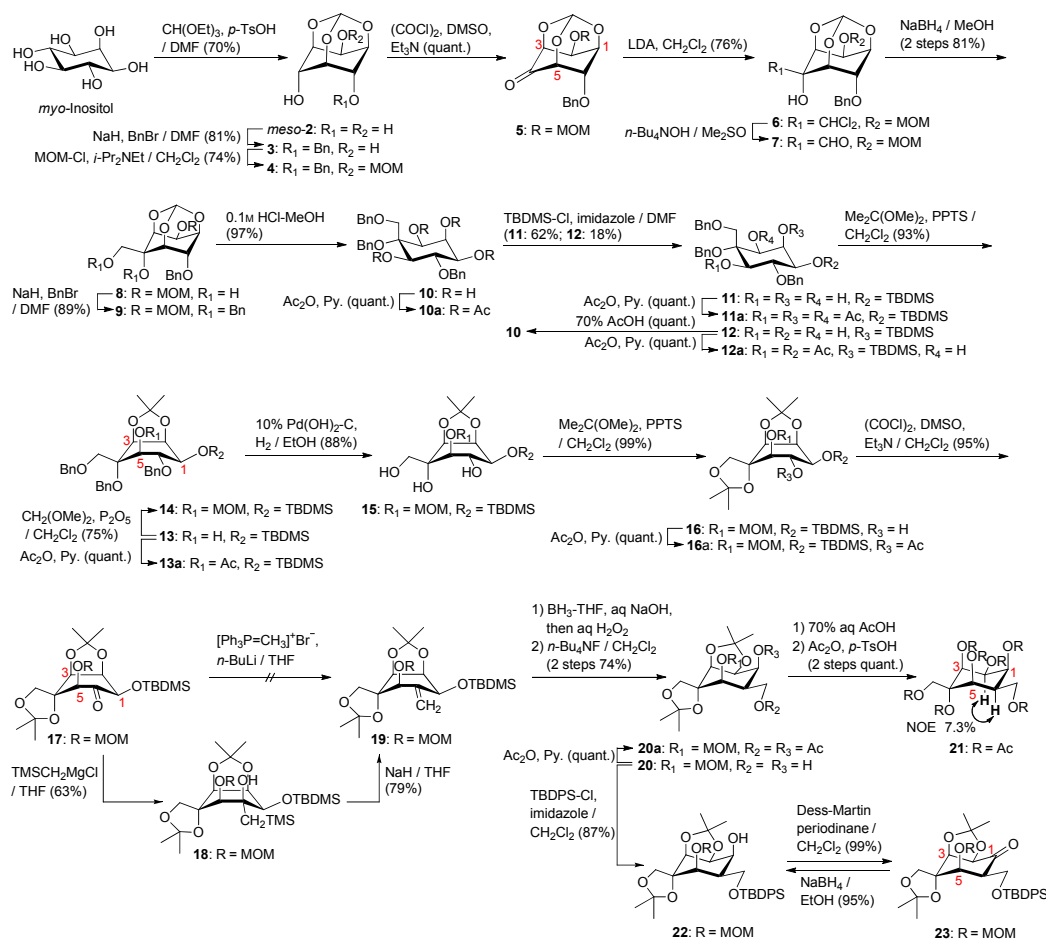 HO
HO
HO
OH
OH
OH
myo-Inositol
CH(OEt)₃, p-TsOH
/ DMF (70%)
O
O
O
OR₂
HO
OR₁
meso-2: R₁ = R₂ = H
NaH, BnBr / DMF (81%)
3: R₁ = Bn, R₂ = H
MOM-Cl, i-Pr₂NEt / CH₂Cl₂ (74%)
4: R₁ = Bn, R₂ = MOM
(COCl)₂, DMSO,
Et₃N (quant.)
O
O
O
OR
3
1
5
O
BnO
5: R = MOM
LDA, CH₂Cl₂ (76%)
O
O
O
OR₂
R₁
HO
BnO
6: R₁ = CHCl₂, R₂ = MOM
n-Bu₄NOH / Me₂SO
7: R₁ = CHO, R₂ = MOM
NaBH₄ / MeOH
(2 steps 81%)
O
O
O
OR
R₁O
R₁O
BnO
NaH, BnBr
/ DMF (89%)
8: R = MOM, R₁ = H
9: R = MOM, R₁ = Bn
0.1M HCl-MeOH
(97%)
BnO
RO
OR
BnO
RO
OR
OBn
Ac₂O, Py. (quant.)
10: R = H
10a: R = Ac
TBDMS-Cl, imidazole / DMF
(11: 62%; 12: 18%)
BnO
OR₃
OR₄
BnO
R₁O
OR₂
OBn
Ac₂O, Py. (quant.)
11: R₁ = R₃ = R₄ = H, R₂ = TBDMS
11a: R₁ = R₃ = R₄ = Ac, R₂ = TBDMS
70% AcOH (quant.)
10
12: R₁ = R₂ = R₄ = H, R₃ = TBDMS
Ac₂O, Py. (quant.)
12a: R₁ = R₂ = Ac, R₃ = TBDMS, R₄ = H
Me₂C(OMe)₂, PPTS /
CH₂Cl₂ (93%)
O
O
OR₁
3
BnO
5
OR₂
BnO
1
BnO
CH₂(OMe)₂, P₂O₅
/ CH₂Cl₂ (75%)
14: R₁ = MOM, R₂ = TBDMS
13: R₁ = H, R₂ = TBDMS
Ac₂O, Py. (quant.)
13a: R₁ = Ac, R₂ = TBDMS
10% Pd(OH)₂-C,
H₂ / EtOH (88%)
O
O
OR₁
HO
OR₂
HO
HO
15: R₁ = MOM, R₂ = TBDMS
Me₂C(OMe)₂, PPTS
/ CH₂Cl₂ (99%)
O
O
OR₁
O
OR₂
R₃O
O
16: R₁ = MOM, R₂ = TBDMS, R₃ = H
Ac₂O, Py. (quant.)
16a: R₁ = MOM, R₂ = TBDMS, R₃ = Ac
(COCl)₂, DMSO,
Et₃N / CH₂Cl₂ (95%)
O
O
OR
3
O
5
OTBDMS
O
O
1
17: R = MOM
[Ph₃P=CH₃]⁺Br⁻,
n-BuLi / THF
O
O
OR
O
OTBDMS
O
CH₂
19: R = MOM
TMSCH₂MgCl
/ THF (63%)
O
O
OR
OH
O
OTBDMS
O
CH₂TMS
18: R = MOM
NaH / THF
(79%)
1) BH₃-THF, aq NaOH,
then aq H₂O₂
2) n-Bu₄NF / CH₂Cl₂
(2 steps 74%)
O
O
OR₁
OR₃
O
O
OR₂
Ac₂O, Py. (quant.)
20a: R₁ = MOM, R₂ = R₃ = Ac
20: R₁ = MOM, R₂ = R₃ = H
1) 70% aq AcOH
2) Ac₂O, p-TsOH
(2 steps quant.)
OR
RO
OR
OR
3
1
RO
5
H
H
OR
OR
NOE 7.3%
21: R = Ac
TBDPS-Cl,
imidazole /
CH₂Cl₂ (87%)
O
O
OR
OH
O
O
OTBDPS
22: R = MOM
Dess-Martin
periodinane /
CH₂Cl₂ (99%)
NaBH₄ /
EtOH (95%)
O
O
OR
1
O
3
5
O
O
OTBDPS
23: R = MOM